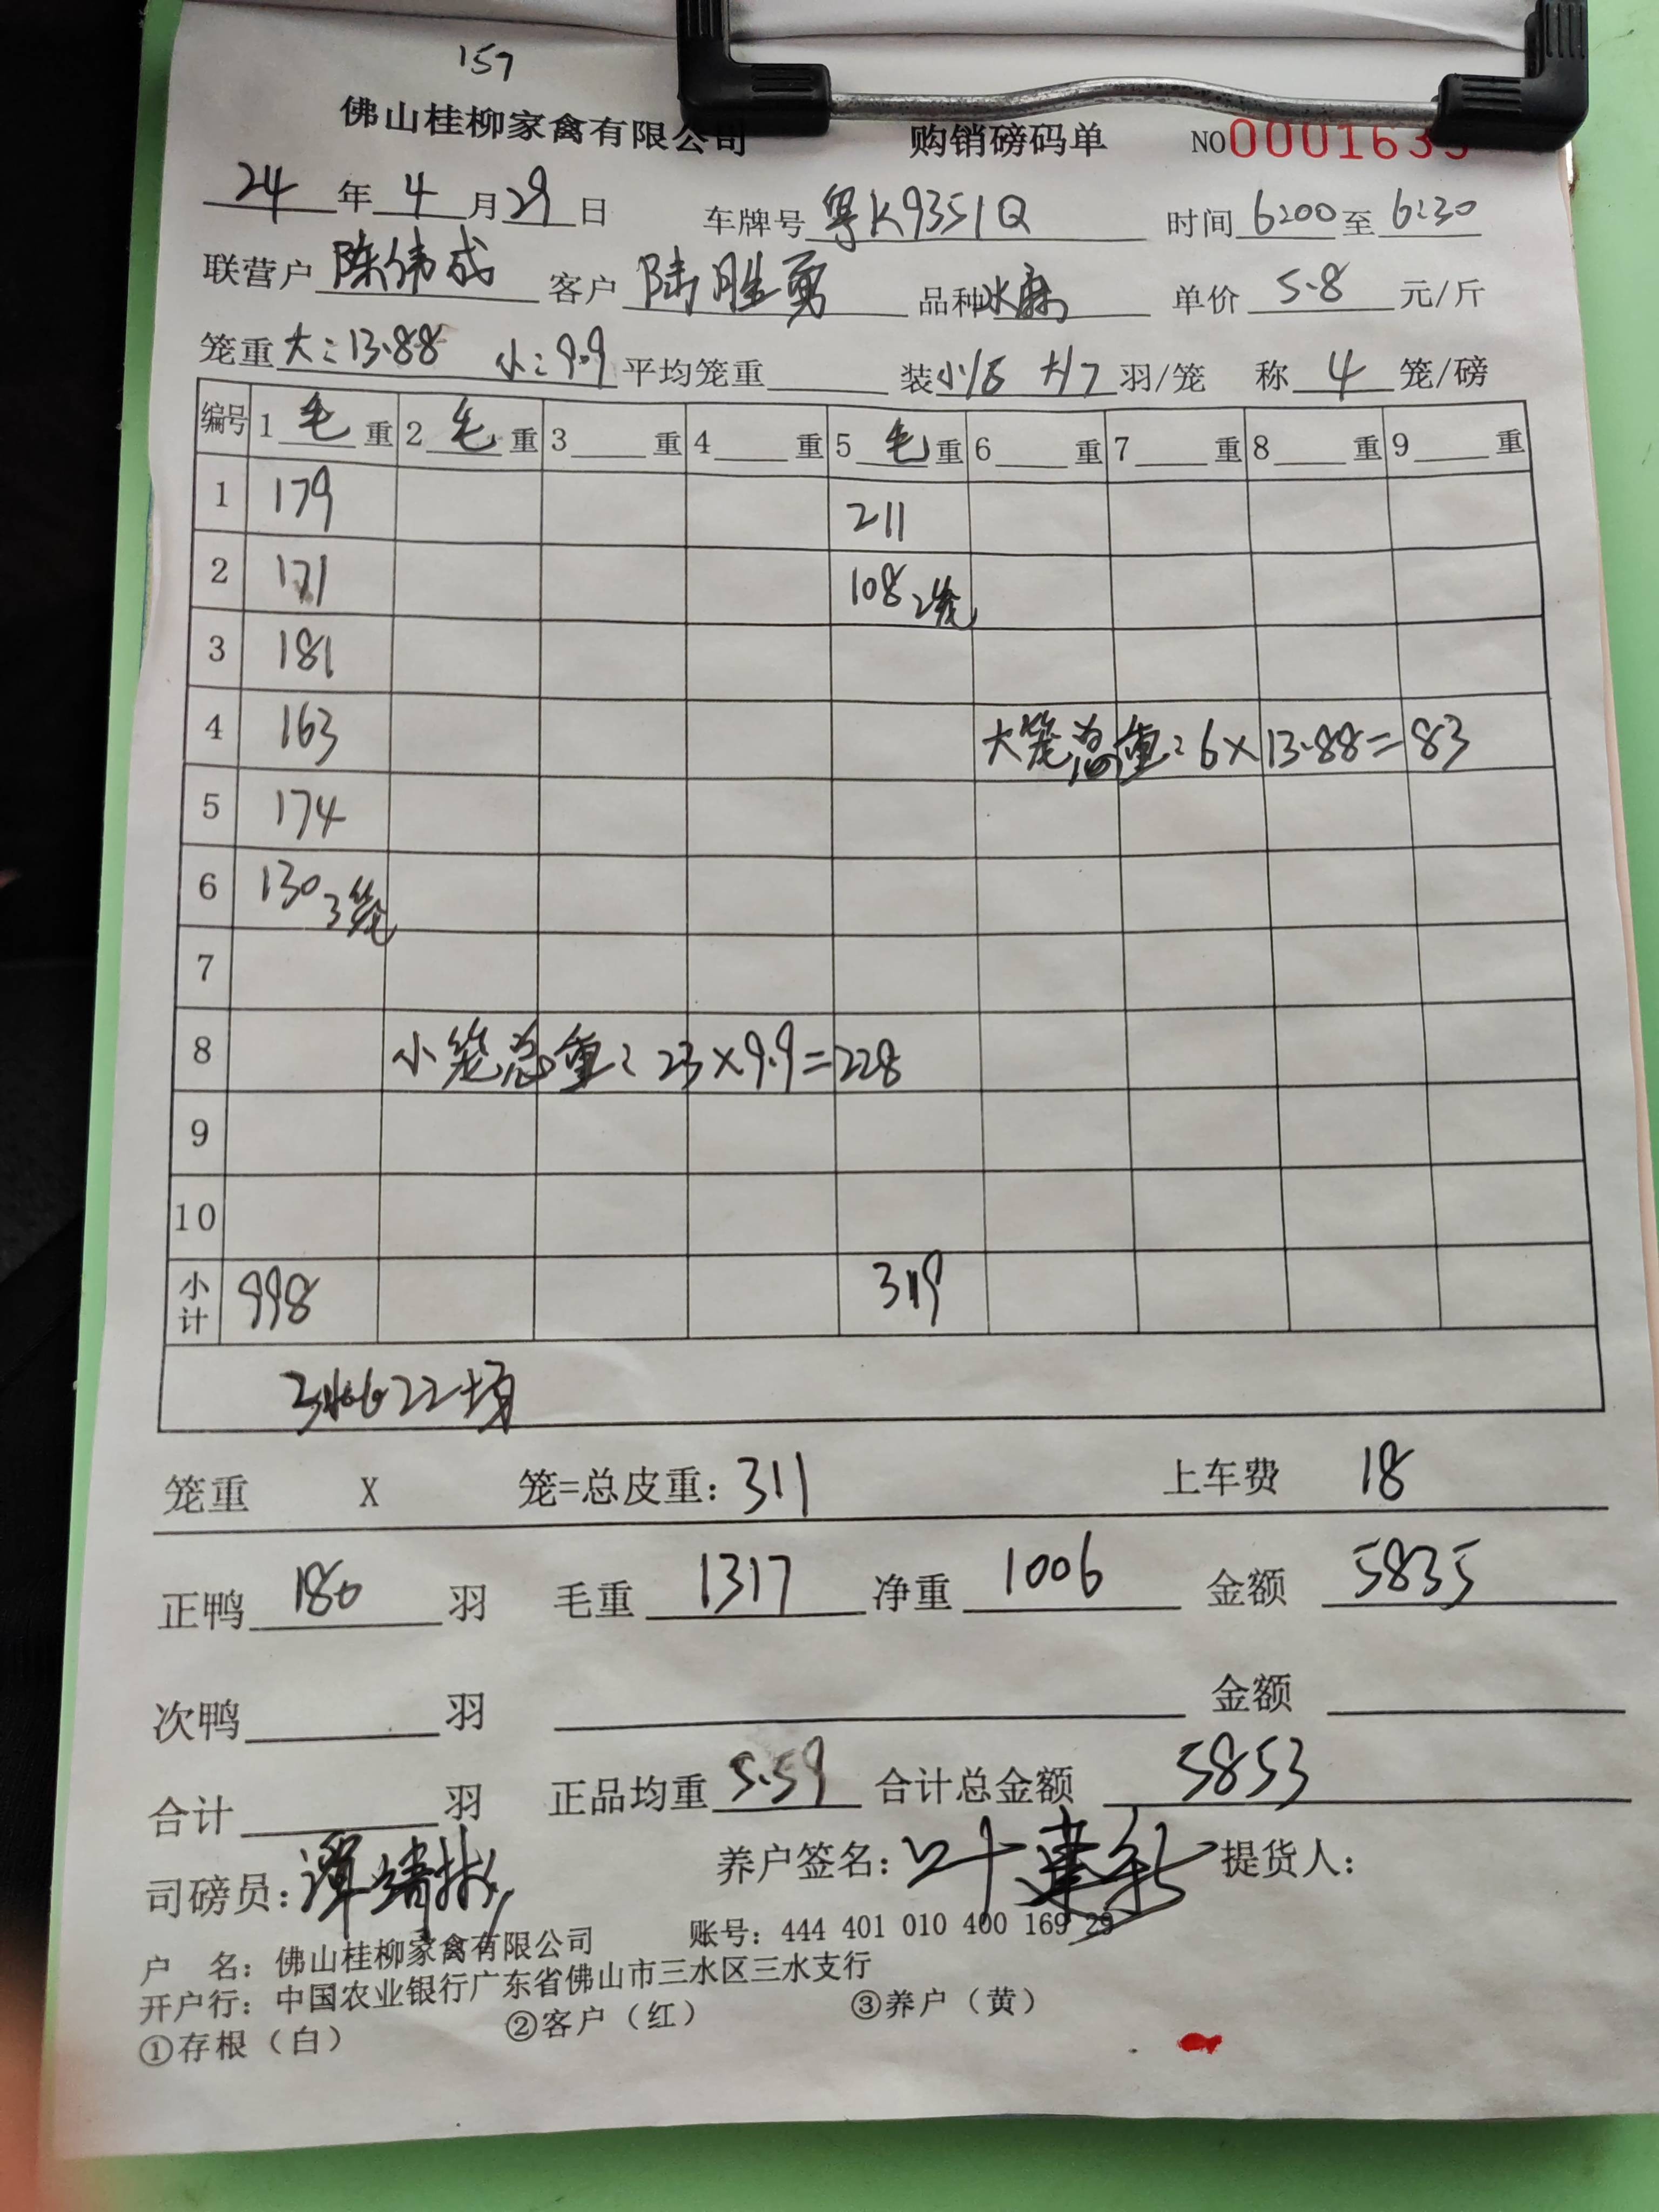 157
佛山桂柳家禽有限公司 购销磅码单 NO 000163
24 年 4 月 29 日 车牌号 粤K9351Q 时间 6:00 至 6:30
联营户 陈伟成 客户 陆胜勇 品种 水麻 单价 5.8 元/斤
笼重 大:13.88 小:9.9 平均笼重 装 小/6 大/7 羽/笼 称 4 笼/磅
编号 1 毛 重 2 毛 重 3 重 4 重 5 毛 重 6 重 7 重 8 重 9 重
1 179 211
2 171 108 2笼
3 181
4 163 大笼总重:6×13.88=83
5 174
6 130 3笼
7
8 小笼总重:23×9.9=228
9
10
小计 998 319
笼重 X 笼=总皮重: 311 上车费 18
正鸭 180 羽 毛重 1317 净重 1006 金额 5835
次鸭 羽 金额
合计 羽 正品均重 5.59 合计总金额 5853
司磅员: 养户签名: 提货人:
户 名: 佛山桂柳家禽有限公司 账号: 444 401 010 400 169 29
开户行: 中国农业银行广东省佛山市三水区三水支行
①存根(白) ②客户(红) ③养户(黄)